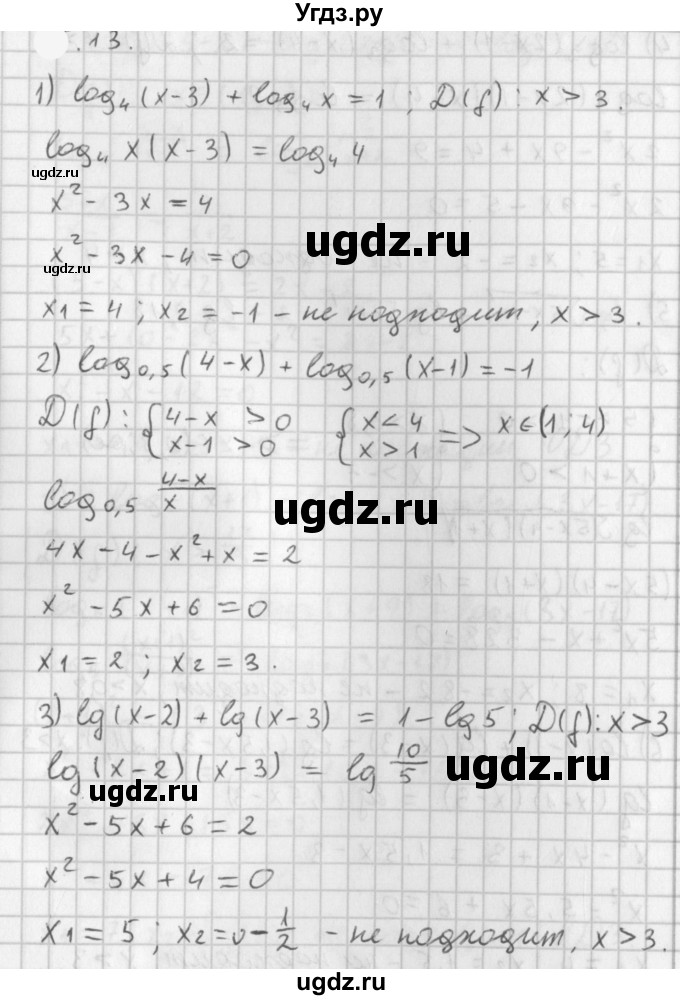 Угдз.ру
.13.
1) log₄(x-3) + log₄ x = 1 ; D(f) : x > 3 .
log₄ x(x-3) = log₄ 4
ugdz.ru
x² - 3x = 4
ugdz.ru
x² - 3x - 4 = 0
ugdz.ru
x₁ = 4 ; x₂ = -1 - не подходит, x > 3 .
2) log₀,₅(4-x) + log₀,₅(x-1) = -1
D(f) : { 4-x > 0 { x < 4 => x ∈ (1 ; 4)
x-1 > 0 x > 1
log₀,₅ (4-x)/x
ugdz.ru
4x - 4 - x² + x = 2
x² - 5x + 6 = 0
x₁ = 2 ; x₂ = 3 .
3) lg(x-2) + lg(x-3) = 1 - lg5 ; D(f) : x > 3
lg(x-2)(x-3) = lg 10/5
ugdz.ru
ugdz.ru
x² - 5x + 6 = 2
x² - 5x + 4 = 0
x₁ = 5 ; x₂ = 0 - 1/2 - не подходит, x > 3.
ugdz.ru